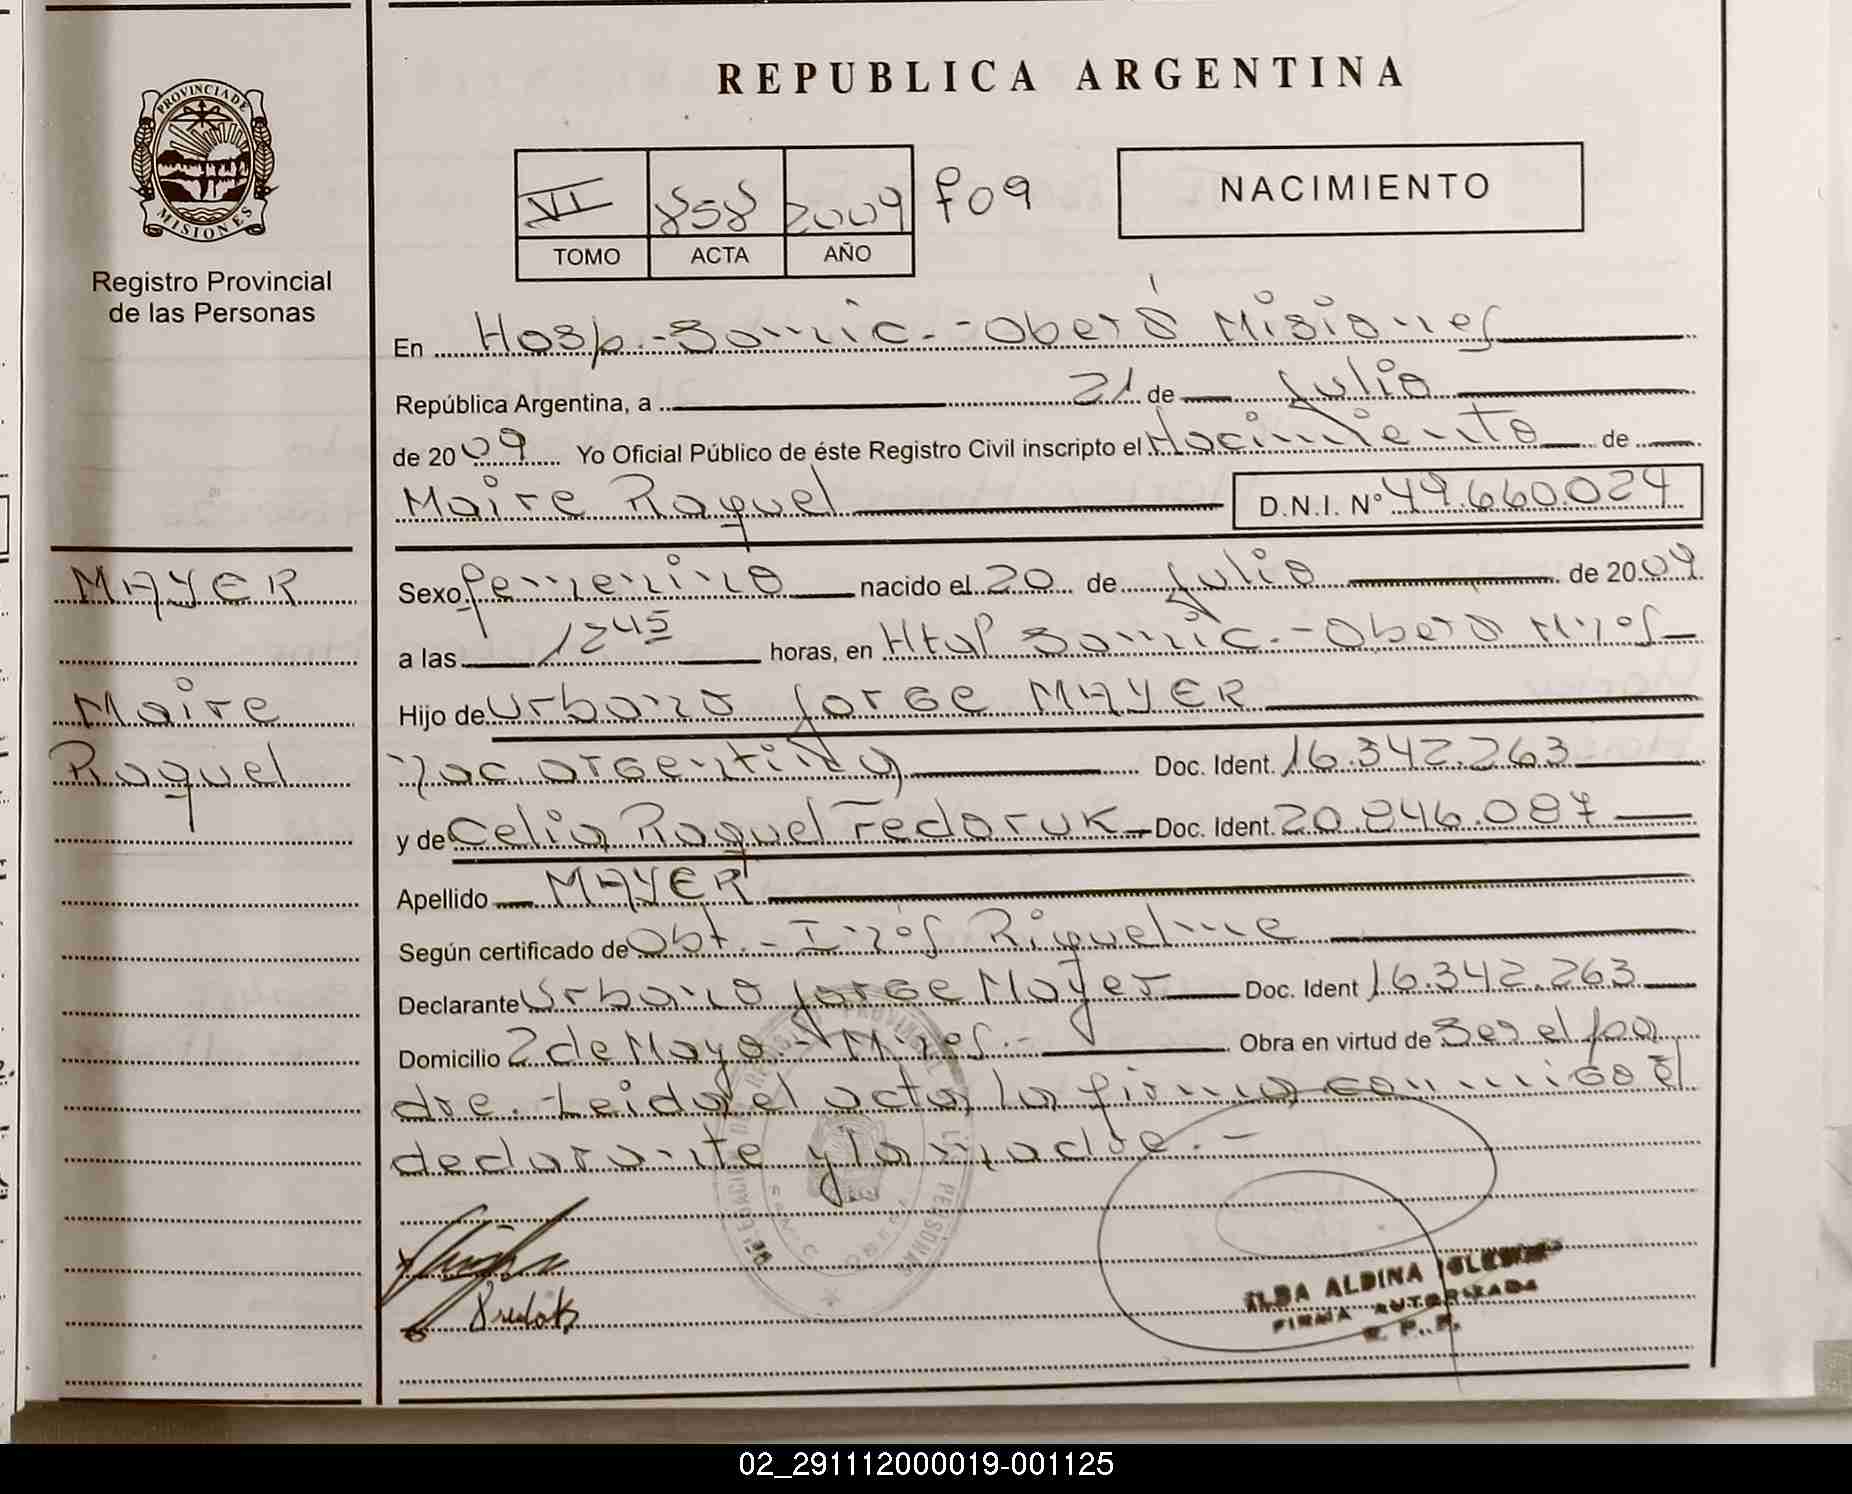 REPUBLICA ARGENTINA
PROVINCIA DE
MISIONES
Registro Provincial
de las Personas
VI 858 2009 f09
TOMO ACTA AÑO
NACIMIENTO
En Hosp.-Samic.-Oberá Misiones
República Argentina, a 21 de Julio
de 2009 Yo Oficial Público de éste Registro Civil inscripto el Nacimiento de
Maire Raquel D.N.I. Nº 49.660.024
MAYER
Maire
Raquel
Sexo femenino nacido el 20 de Julio de 2009
a las 12 45 horas, en Htal Samic.-Oberá Mnes
Hijo de Urbano Jorge MAYER
nac. argentina Doc. Ident. 16.342.263
y de Celia Raquel Fedoruk Doc. Ident. 20.846.087
Apellido MAYER
Según certificado de Obt.- Inés Riquelme
Declarante Urbano Jorge Mayer Doc. Ident 16.342.263
Domicilio 2 de Mayo.- Mnes.- Obra en virtud de Ser el pa
dre.-Leida el acta, la firma conmigo el
declarante y la madre.-
ILDA ALDINA IGLESIAS
FIRMA AUTORIZADA
R. P. P.
02_291112000019-001125